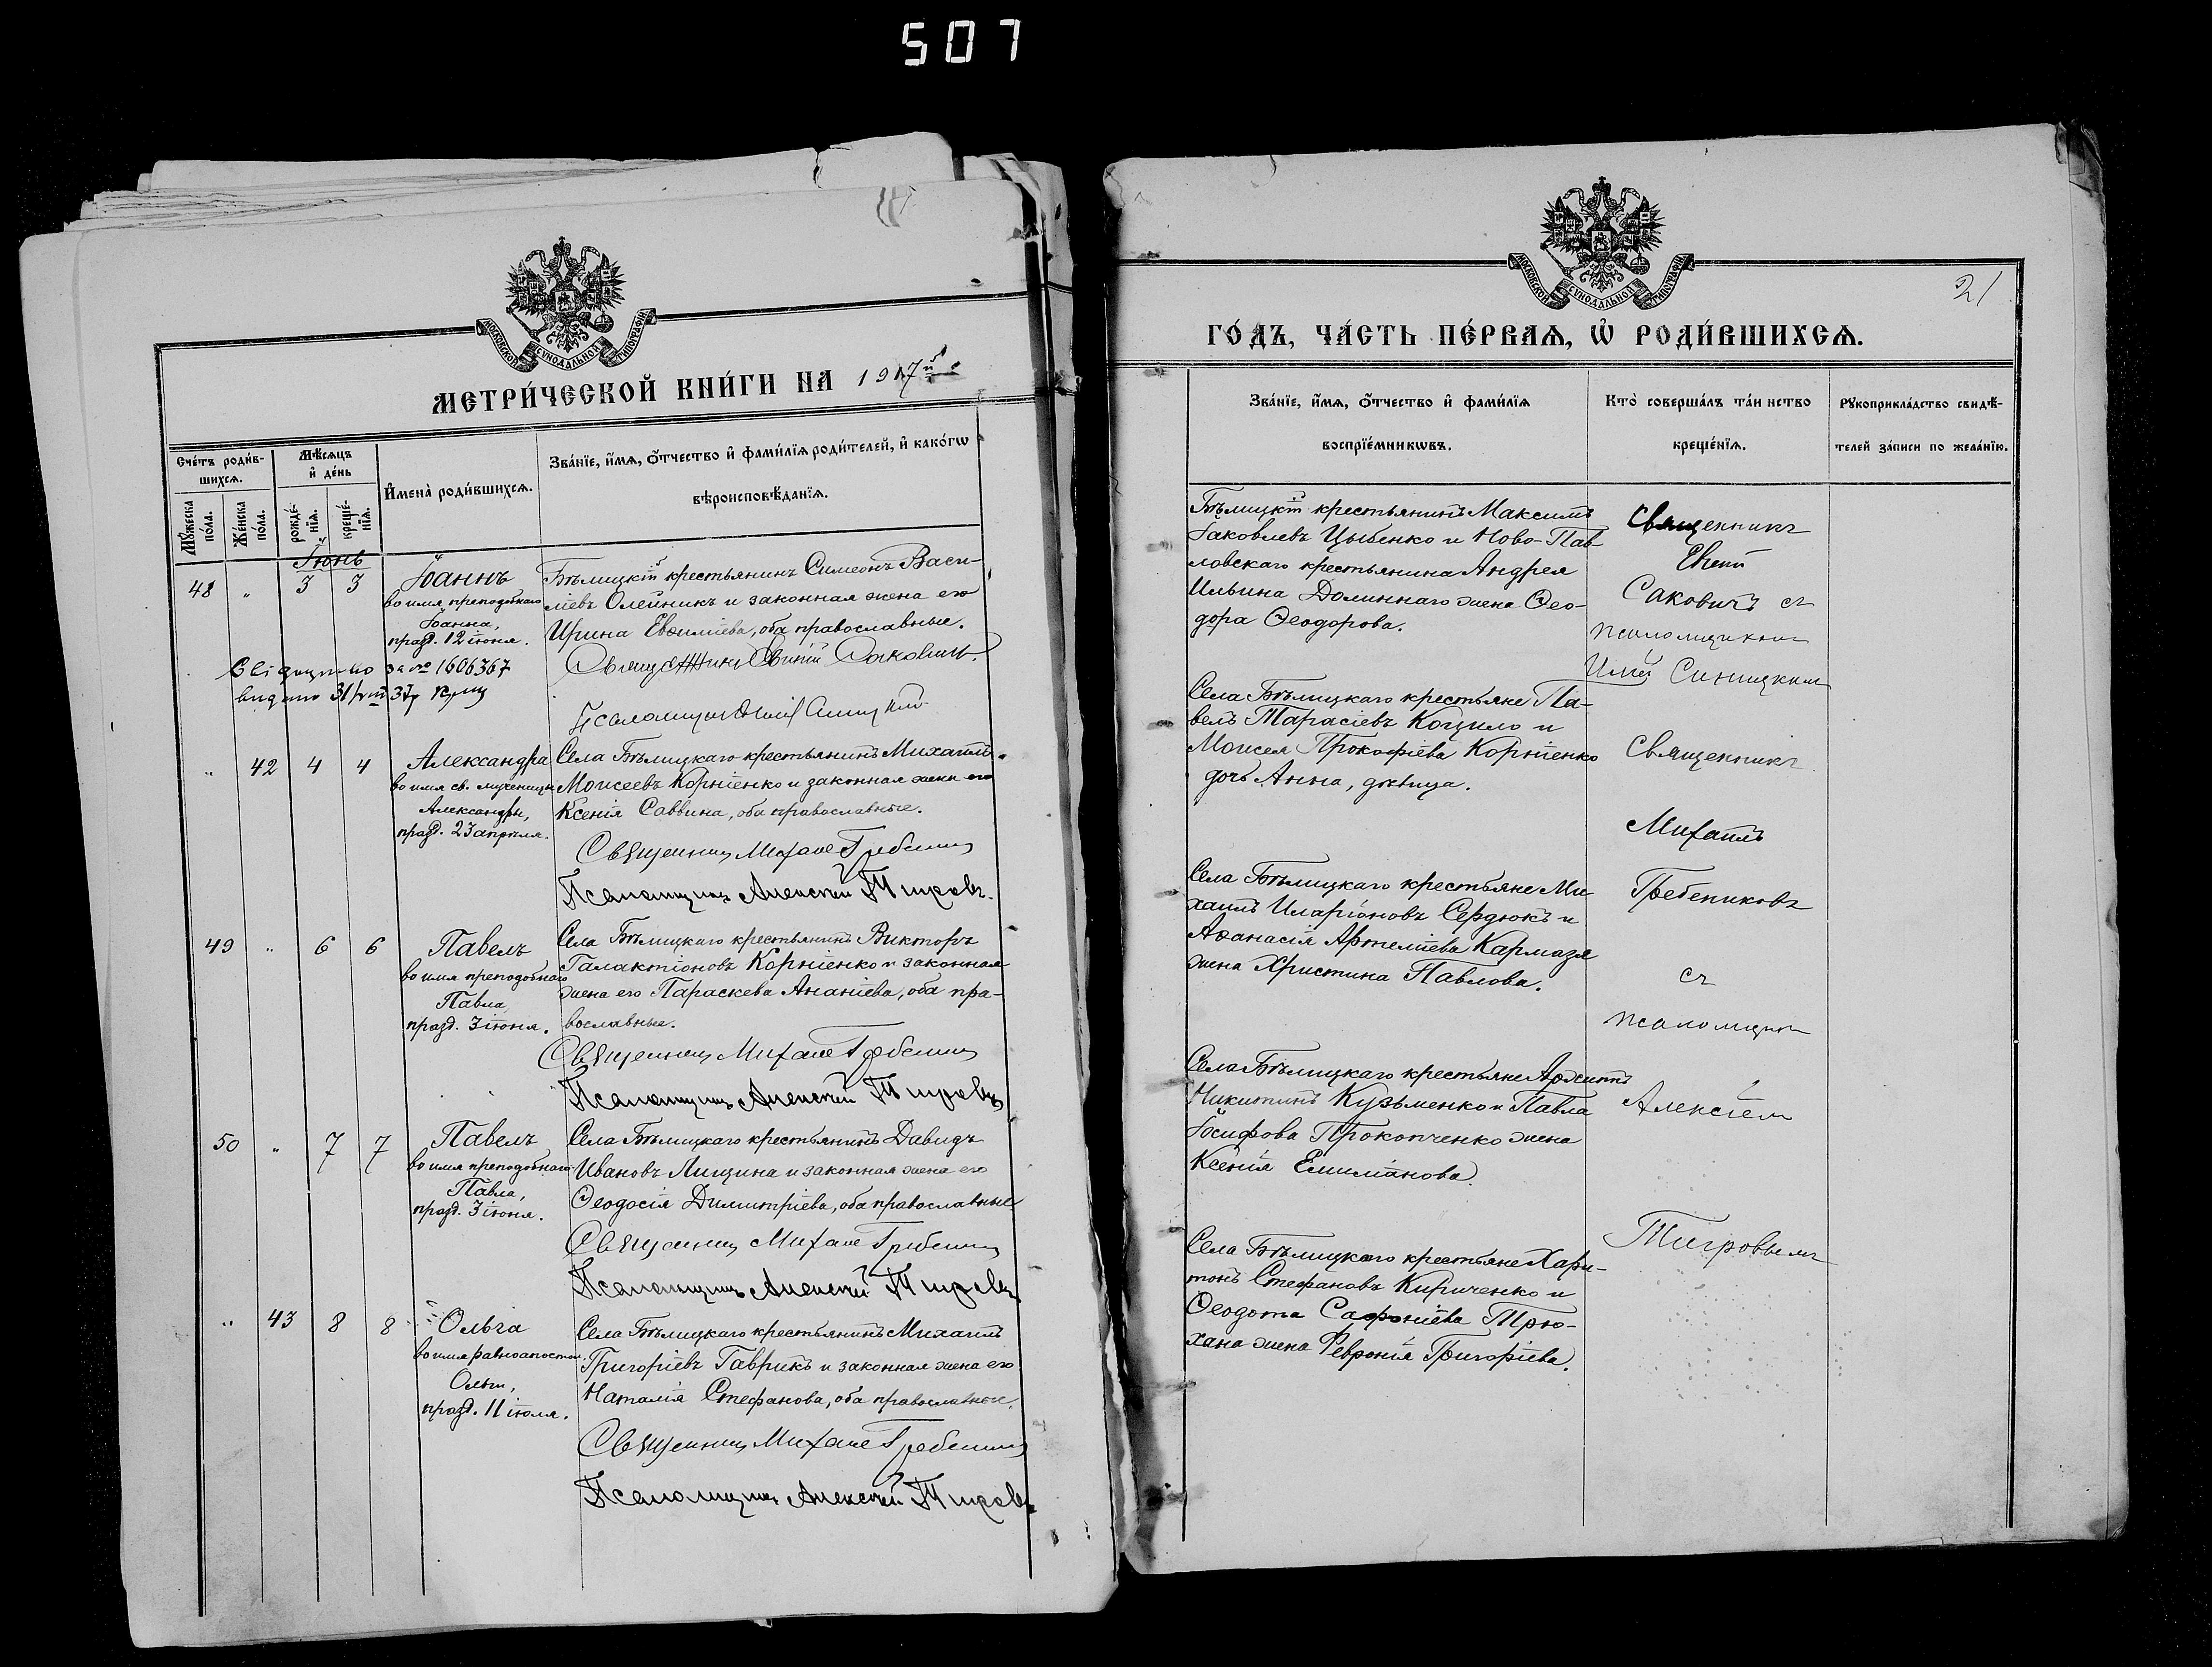 507
МОСКОВСКОЙ СѴНОДАЛЬНОЙ ТИПОГРАФІИ
МЕТРИ́ЧЕСКОЙ КНИ́ГИ НА 1917й
Сче́тъ роди́в-
шихсѧ.
Мѣ́сѧцъ
и҆ де́нь
Мꙋ́жеска
по́ла.
Же́нска
по́ла.
рожде́-
нїѧ.
креще́-
нїѧ.
И҆мена̀ роди́вшихсѧ.
Зва́нїе, и҆́мѧ, ѻ҆́тчество и҆ фами́лїѧ роди́телей, и҆ како́гѡ
вѣроисповѣ́данїѧ.
Іюнь
48 „ 3 3
Іоаннъ
во имя преподобнаго
Іоанна,
празд. 12 іюня.
Бѣлицкій крестьянинъ Симеонъ Васи-
ліевъ Олейникъ и законная жена его
Ирина Евѳиміева, оба православные.
за № 1606367
видано 31/VIII 37р
„ 42 4 4
Александра
во имя св. мученицы
Александры,
празд. 23 апрѣля.
Села Бѣлицкаго крестьянинъ Михаилъ
Моисеевъ Корніенко и законная жена его
Ксенія Саввина, оба православные.
Священникъ Михаил Гребеник
Псаломщикъ Алексій Тигровъ.
49 „ 6 6
Павелъ
во имя преподобнаго
Павла,
празд. 3 іюня.
Села Бѣлицкаго крестьянинъ Викторъ
Галактіоновъ Корніенко и законная
жена его Параскева Ананіева, оба пра-
вославные.
Священникъ Михаил Гребеник
Псаломщикъ Алексій Тигровъ
50 „ 7 7
Павелъ
во имя преподобнаго
Павла,
празд. 3 іюня.
Села Бѣлицкаго крестьянинъ Давидъ
Ивановъ Лищина и законная жена его
Ѳеодосія Димитріева, оба православные
Священникъ Михаил Гребеник
Псаломщикъ Алексій Тигровъ
„ 43 8 8
Ольга
во имя равноапостол.
Ольги,
празд. 11 іюля.
Села Бѣлицкаго крестьянинъ Михаилъ
Григоріевъ Гаврикъ и законная жена его
Наталія Стефанова, оба православные.
Священникъ Михаил Гребеник
Псаломщикъ Алексій Тигровъ
МОСКОВСКОЙ СѴНОДАЛЬНОЙ ТИПОГРАФІИ
21
ГО́ДЪ, ЧА́СТЬ ПЕ́РВАѦ, Ѡ҆ РОДИ́ВШИХСѦ.
Зва́нїе, и҆́мѧ, ѻ҆́тчество и҆ фами́лїѧ
воспрїе́мникѡвъ.
Кто̀ соверша́лъ та́инство
креще́нїѧ.
Рꙋкоприкла́дство свидѣ́-
телей за́писи по жела́нїю.
Бѣлицкій крестьянинъ Максимъ
Іаковлевъ Цыбенко и Ново-Пав-
ловскаго крестьянина Андрея
Ильина Долиннаго жена Ѳео-
дора Ѳеодорова.
Священникъ
Евѳимій
Саковичъ съ
псаломщикомъ
Синицкимъ
Села Бѣлицкаго крестьяне Па-
велъ Тарасіевъ Коцило и
Моисея Прокофіева Корніенко
дочь Анна, дѣвица.
Села Бѣлицкаго крестьяне Ми-
хаилъ Иларіоновъ Сердюкъ и
Аѳанасія Артеміева Кармазя
жена Христина Павлова.
Села Бѣлицкаго крестьяне Арсеній
Никитинъ Кузьменко и Павла
Іосифова Прокопченко жена
Ксенія Емиліанова.
Села Бѣлицкаго крестьяне Хари-
тонъ Стефановъ Кириченко и
Ѳеодота Сафоніева Трю-
хана жена Февронія Григоріева.
Священникъ
Михаилъ
Гребениковъ
съ
псаломщикомъ
Алексіемъ
Тигровымъ